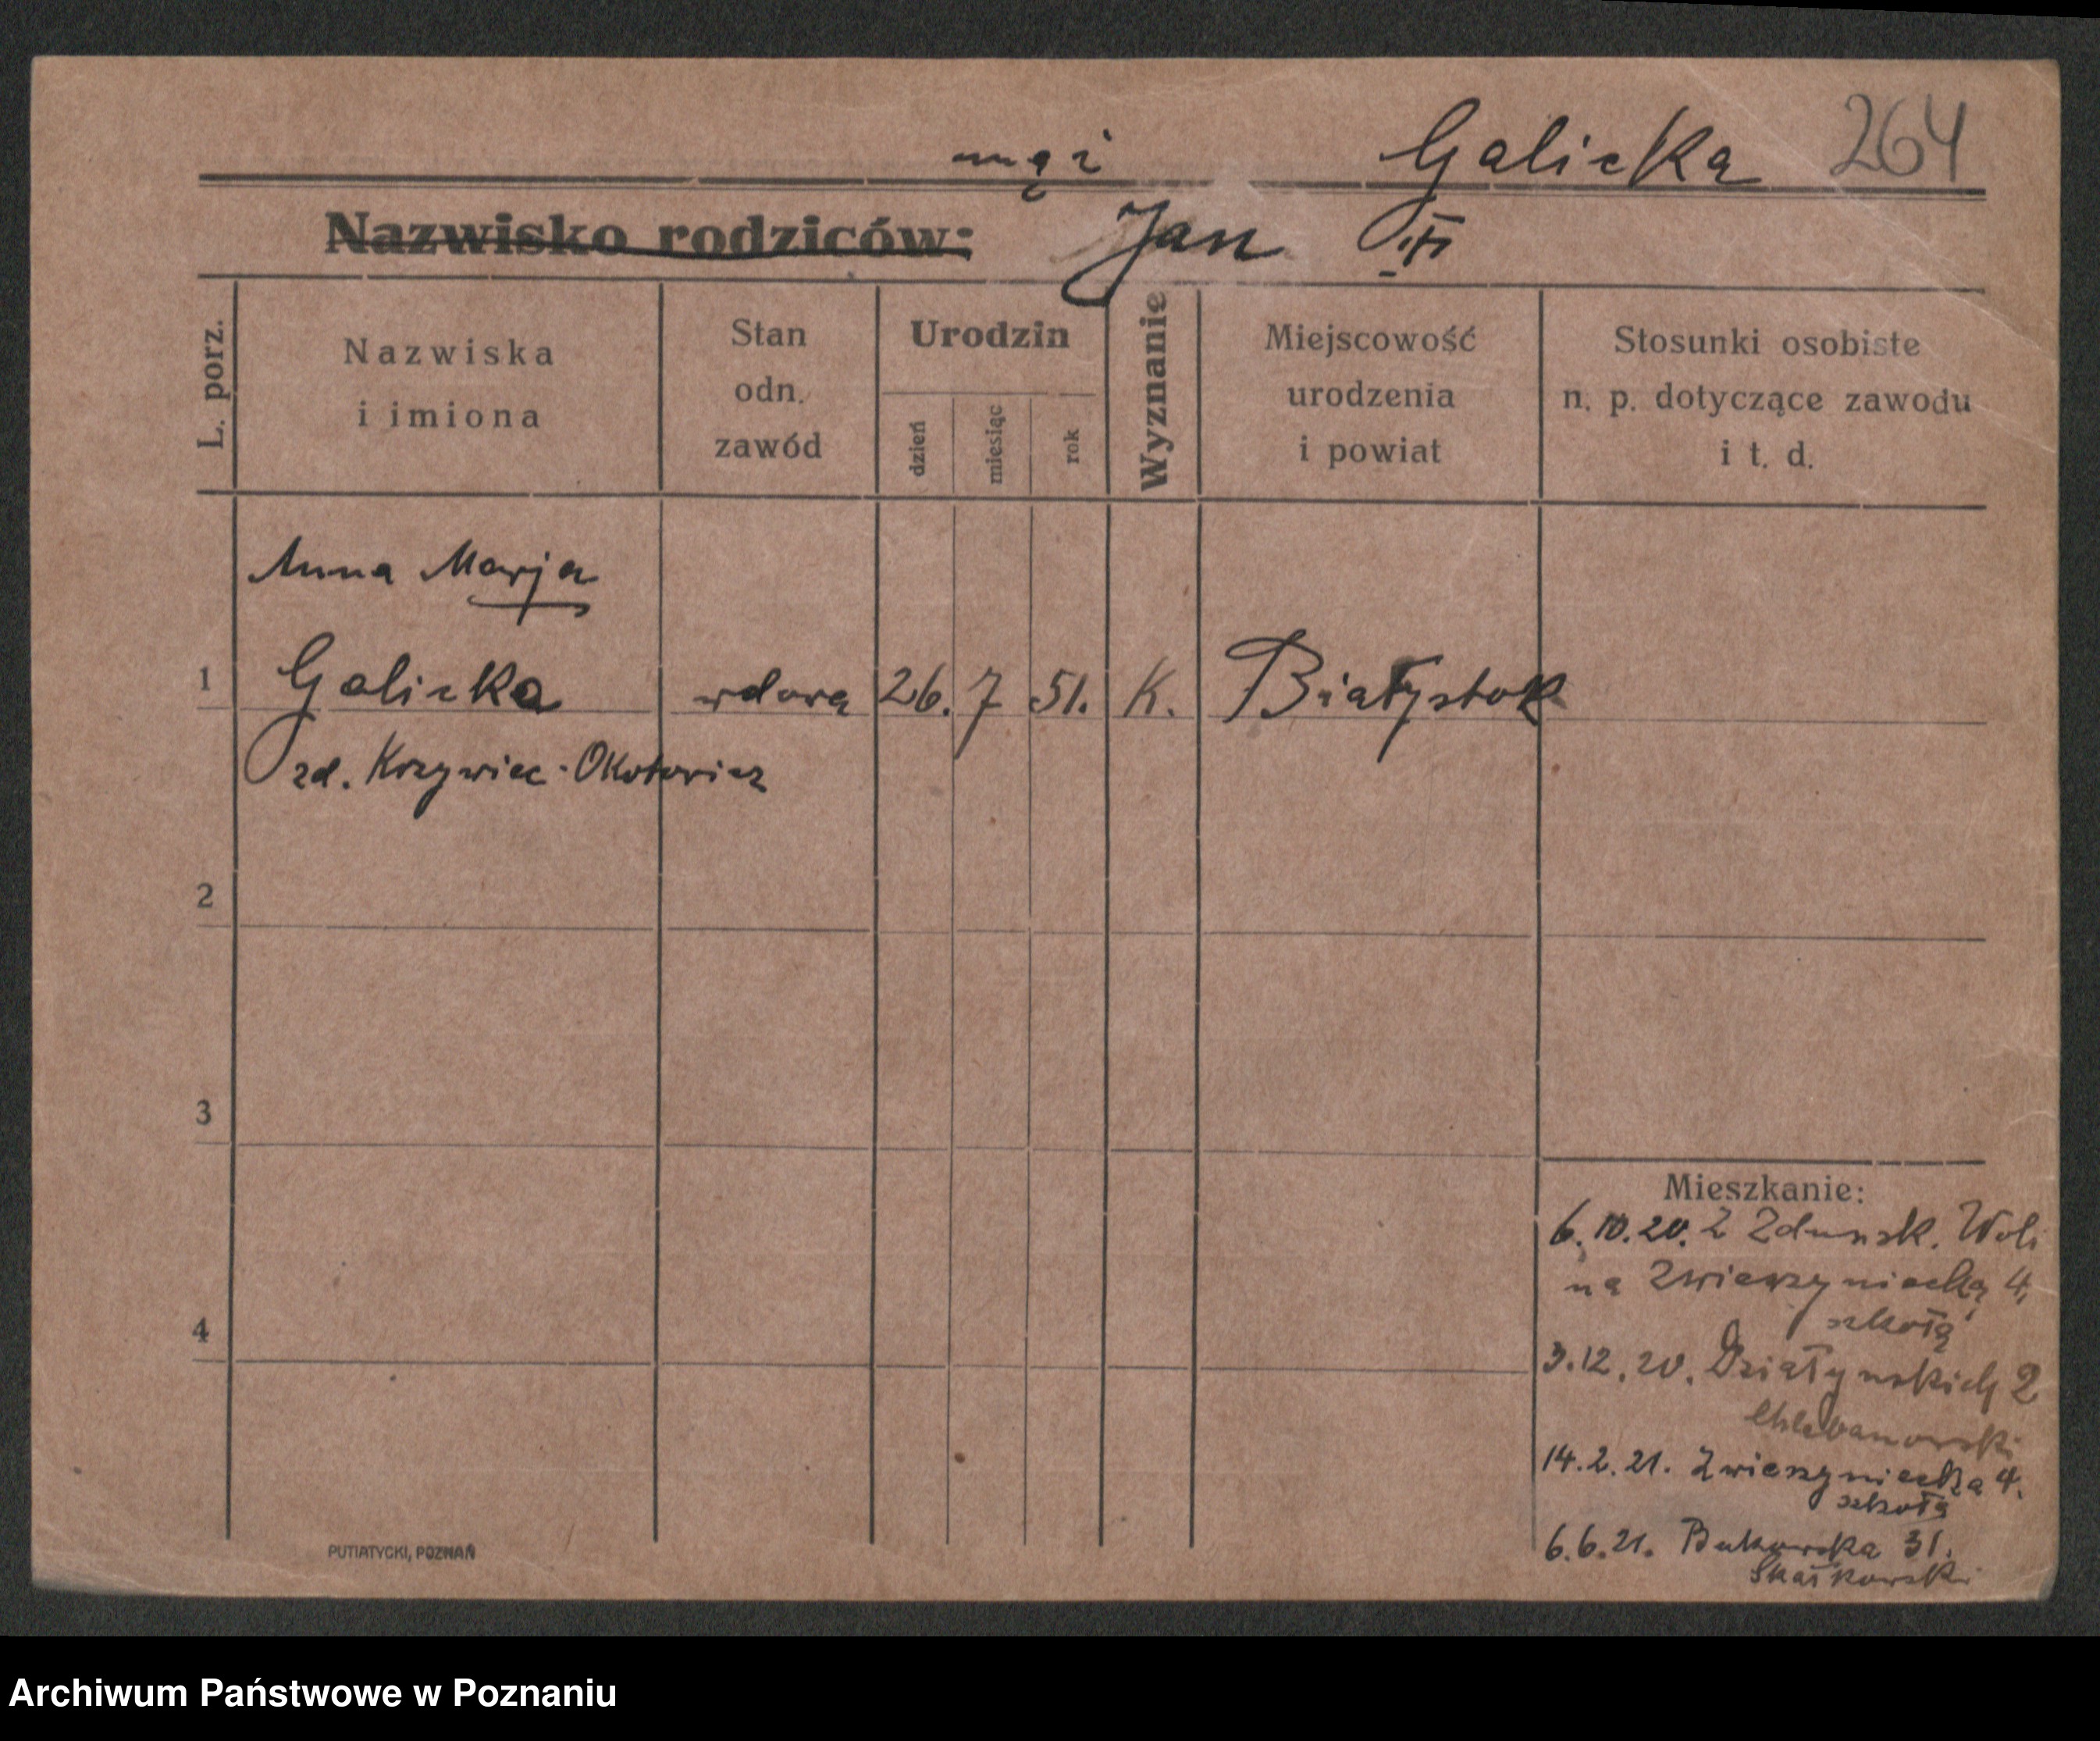 mąż Galicka 264
Nazwisko rodziców: Jan
L. porz.
Nazwiska
i imiona
Stan
odn.
zawód
Urodzin
dzień
miesiąc
rok
Wyznanie
Miejscowość
urodzenia
i powiat
Stosunki osobiste
n. p. dotyczące zawodu
i t. d.
Anna Marja
1 Galicka wdowa 26. 7 51. K. Białystok
zd. Krzywiec-Okołowicz
2
3
4
Mieszkanie:
6.10.20. Z Zdunsk. Woli
na Zwierzyniecką 4,
szkoła
3.12.20. Działyńskich 2
Chlebanowski
14.2.21. Zwierzyniecka 4.
szkoła
6.6.21. Bukowska 31.
Skałkowski
PUTIATYCKI, POZNAŃ
Archiwum Państwowe w Poznaniu